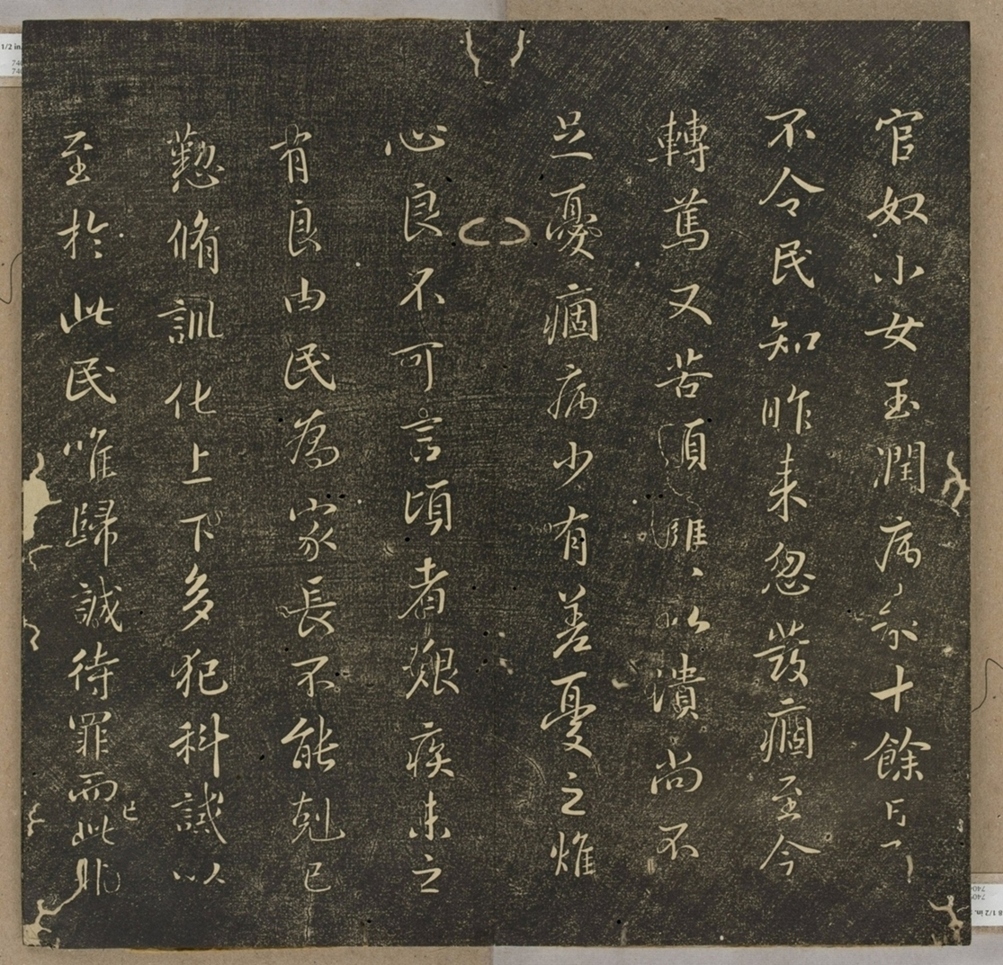 官奴小女玉潤病來十餘日了
不令民知昨來忽發痼至今
轉篤又苦頭癰、以潰尚不
足憂痼病少有差憂之燋
心良不可言頃者艱疾未之
有良由民為家長不能剋己
懃脩訓化上下多犯科誡以
至於此民唯歸誠待罪而已此非